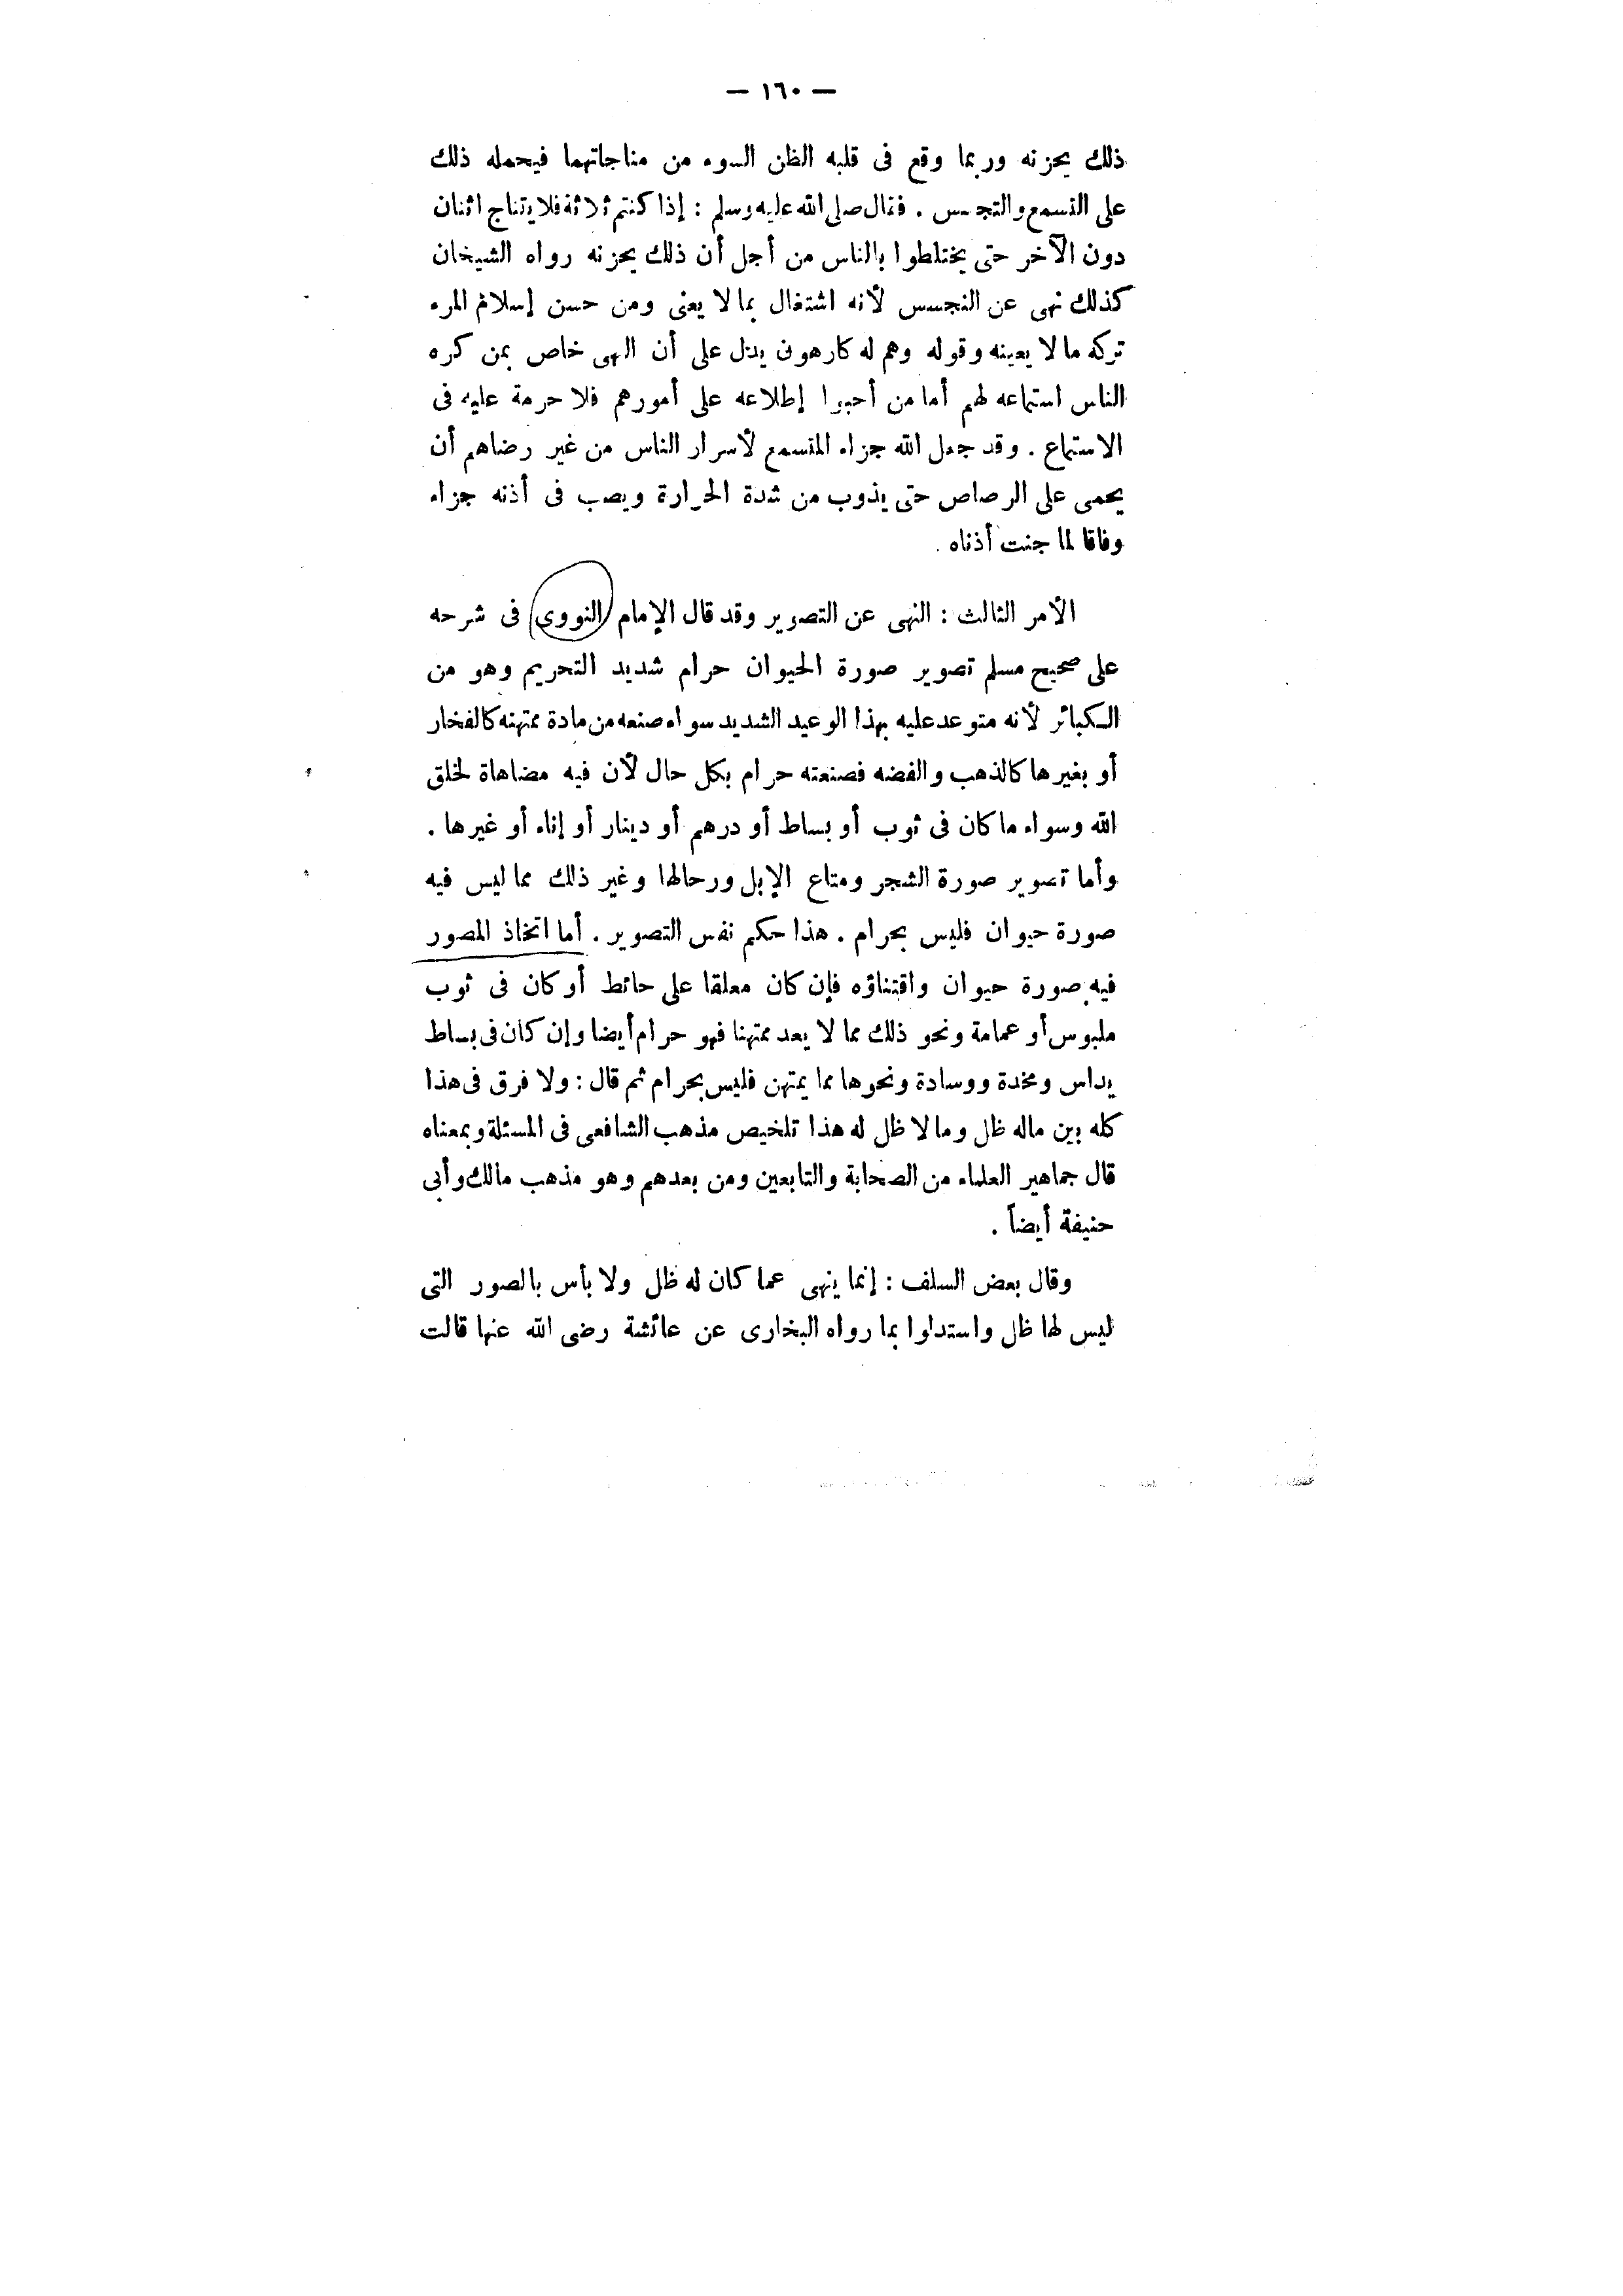 — ١٦٠ —
ذلك يحزنه وربما وقع فى قلبه الظن السوء من مناجاتهما فيحمله ذلك
على التسمع والتجسس . فقال صلى الله عليه وسلم : إذا كنتم ثلاثة فلا يتناج اثنان
دون الآخر حتى يختلطوا بالناس من أجل أن ذلك يحزنه رواه الشيخان
كذلك نهى عن التجسس لأنه اشتغال بما لا يعنى ومن حسن إسلام المرء
تركه ما لا يعينه وقوله وهم له كارهون يدل على أن النهى خاص بمن كره
الناس استماعه لهم أما من أحبوا إطلاعه على أمورهم فلا حرمة عليه فى
الاستماع . وقد جعل الله جزاء المتسمع لأسرار الناس من غير رضاهم أن
يحمى على الرصاص حتى يذوب من شدة الحرارة ويصب فى أذنه جزاء
وفاقا لما جنت أذناه .
الأمر الثالث : النهى عن التصوير وقد قال الإمام النووى فى شرحه
على صحيح مسلم تصوير صورة الحيوان حرام شديد التحريم وهو من
الكبائر لأنه متوعد عليه بهذا الوعيد الشديد سواء صنعه من مادة ممتهنه كالفخار
أو بغيرها كالذهب والفضه فصنعته حرام بكل حال لأن فيه مضاهاة لخلق
الله وسواء ما كان فى ثوب أو بساط أو درهم أو دينار أو إناء أو غيرها .
وأما تصوير صورة الشجر ومتاع الإبل ورحالها وغير ذلك مما ليس فيه
صورة حيوان فليس بحرام . هذا حكم نفس التصوير . أما اتخاذ المصور
فيه صورة حيوان واقتناؤه فإن كان معلقا على حائط أو كان فى ثوب
ملبوس أو عمامة ونحو ذلك مما لا يعد ممتهنا فهو حرام أيضا وإن كان فى بساط
يداس ومخدة ووسادة ونحوها مما يمتهن فليس بحرام ثم قال : ولا فرق فى هذا
كله بين ماله ظل وما لا ظل له هذا تلخيص مذهب الشافعى فى المسئلة وبمعناه
قال جماهير العلماء من الصحابة والتابعين ومن بعدهم وهو مذهب مالك وأبى
حنيفة أيضاً .
وقال بعض السلف : إنما ينهى عما كان له ظل ولا بأس بالصور التى
ليس لها ظل واستدلوا بما رواه البخارى عن عائشة رضى الله عنها قالت